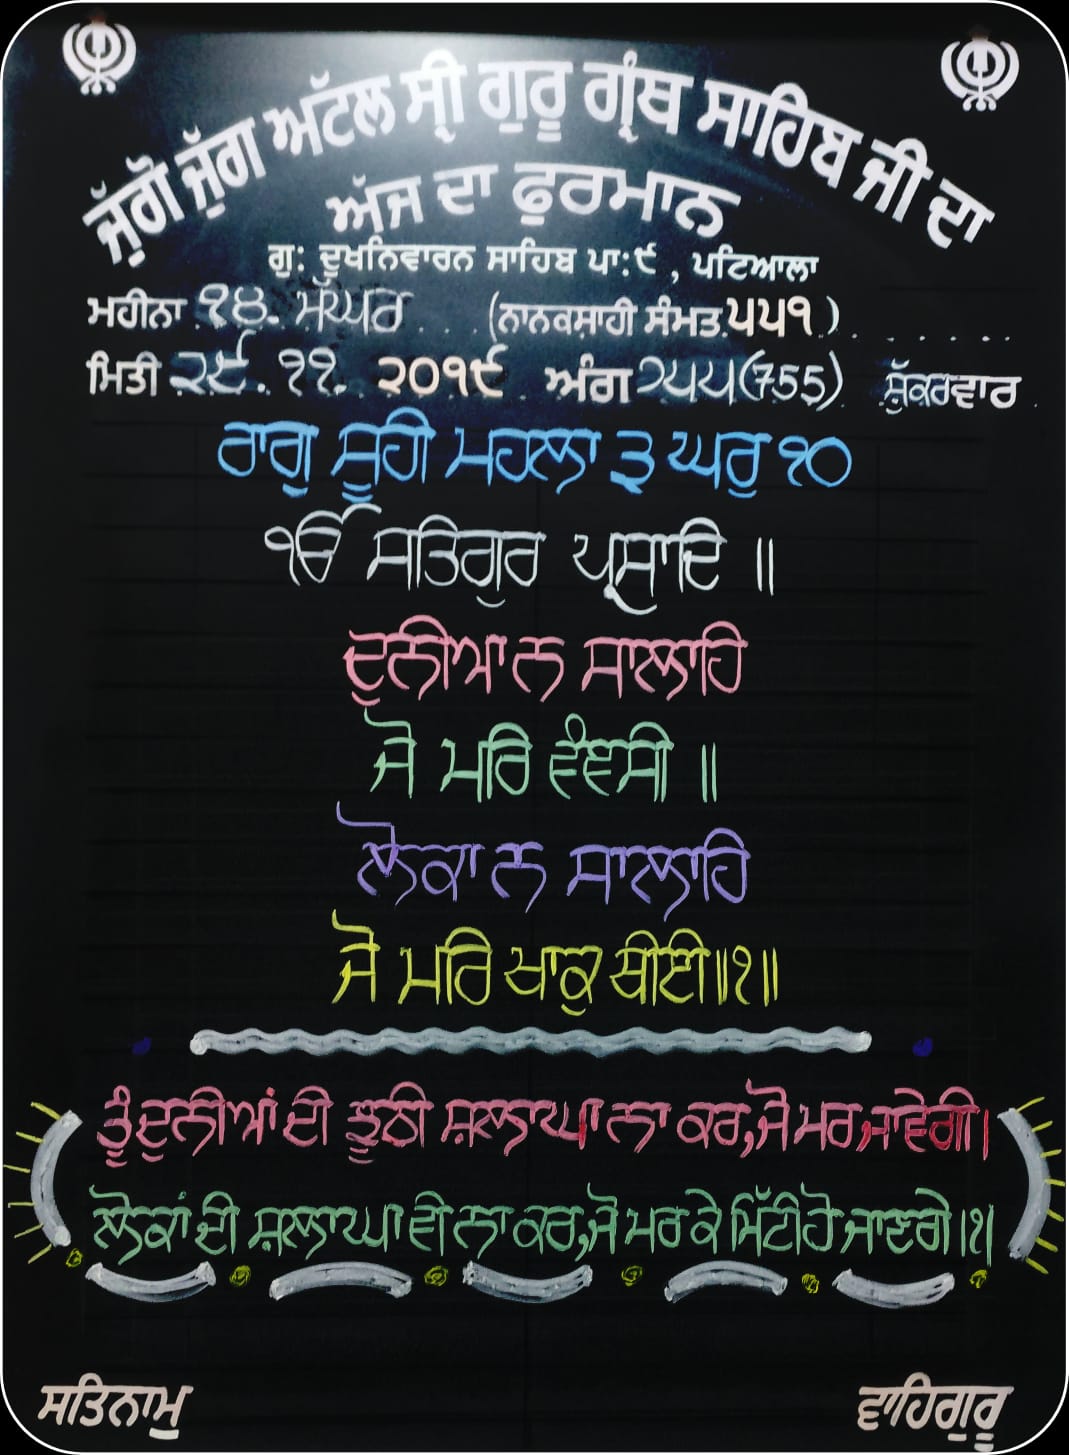 ਜੁੱਗੋ ਜੁੱਗ ਅਟੱਲ ਸ੍ਰੀ ਗੁਰੂ ਗ੍ਰੰਥ ਸਾਹਿਬ ਜੀ ਦਾ
ਅੱਜ ਦਾ ਫੁਰਮਾਨ
ਗੁ: ਦੁਖਨਿਵਾਰਨ ਸਾਹਿਬ ਪਾ:੯ , ਪਟਿਆਲਾ
ਮਹੀਨਾ ੧੪. ਮੱਘਰ (ਨਾਨਕਸ਼ਾਹੀ ਸੰਮਤ ੫੫੧)
ਮਿਤੀ ੨੯. ੧੧. ੨੦੧੯ ਅੰਗ ੭੫੫(755) ਸ਼ੁੱਕਰਵਾਰ
ਰਾਗੁ ਸੂਹੀ ਮਹਲਾ ੩ ਘਰੁ ੧੦
ੴ ਸਤਿਗੁਰ ਪ੍ਰਸਾਦਿ ॥
ਦੁਨੀਆ ਨ ਸਾਲਾਹਿ
ਜੋ ਮਰਿ ਵੰਞਸੀ ॥
ਲੋਕਾ ਨ ਸਾਲਾਹਿ
ਜੋ ਮਰਿ ਖਾਕੁ ਥੀਈ॥੧॥
ਤੂੰ ਦੁਨੀਆਂ ਦੀ ਝੂਠੀ ਸ਼ਲਾਘਾ ਨਾ ਕਰ,ਜੋ ਮਰ,ਜਾਵੇਗੀ।
ਲੋਕਾਂ ਦੀ ਸ਼ਲਾਘਾ ਵੀ ਨਾ ਕਰ,ਜੋ ਮਰ ਕੇ ਮਿੱਟੀ ਹੋ ਜਾਣਗੇ।੧।
ਸਤਿਨਾਮੁ ਵਾਹਿਗੁਰੂ